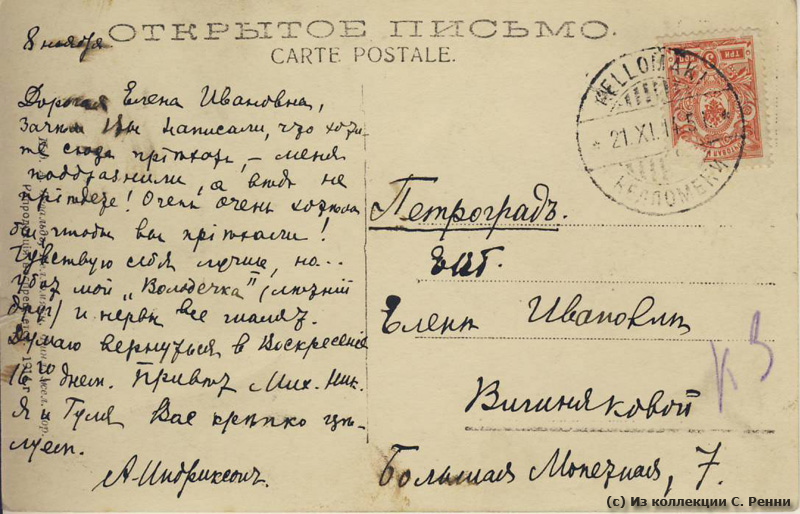 ОТКРЫТОЕ ПИСЬМО.
CARTE POSTALE.
8 ноября
Дорогая Елена Ивановна,
Зачѣмъ Вы написали, что хоти-
те сюда пріѣхать, – меня
поддразнили, а вѣдь не
пріѣдете! Очень очень хотѣла
бы чтобы вы пріѣхали!
Чувствую себя лучше, но...
мой „Володечка" (
другъ) и нервы все шалятъ.
Думаю вернуться в Воскресеніе
16го днем. Привѣтъ Мих. Ник.
Я и Гуля Вас крѣпко цѣ-
луем.
А. Индриксонъ.
KELLOMÄKI
* 21.XI.1 *
КЕЛЛОМЯКИ
ТРИ
Петроградъ.
ЕВБ.
Еленѣ Ивановнѣ
Вишняковой
Большая Монетная, 7.
К В
(c) Из коллекции С. Ренни